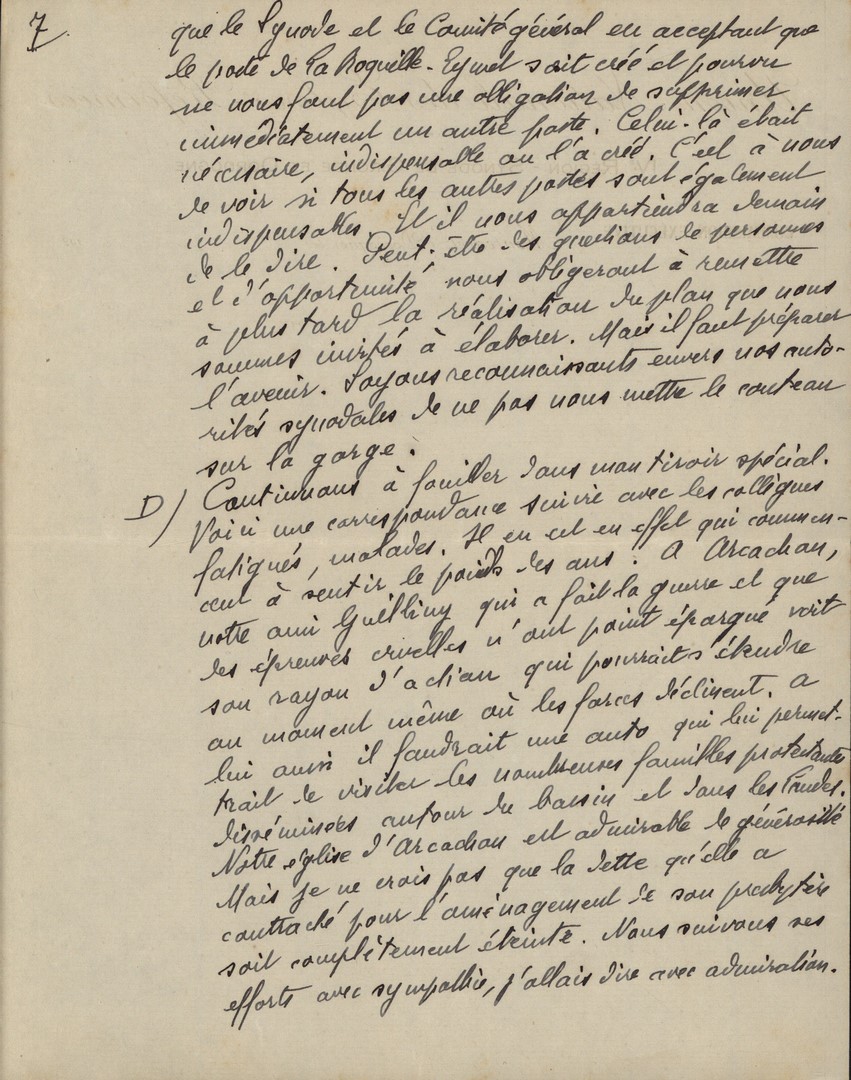 7
que le Synode et le Comité général en acceptant que
le poste de La Roquille-Eymet soit créé et pourvu
ne nous font pas une obligation de supprimer
immédiatement un autre poste. Celui-là était
nécessaire, indispensable on l'a créé. C'est à nous
de voir si tous les autres postes sont également
indispensables. Et il nous appartiendra demain
de le dire. Peut-être des questions de personnes
et d'opportunité nous obligeront à remettre
à plus tard la réalisation du plan que nous
sommes invités à élaborer. Mais il faut préparer
l'avenir. Soyons reconnaissants envers nos auto-
rités synodales de ne pas nous mettre le couteau
sur la gorge.
D) Continuons à fouiller dans mon tiroir spécial.
Voici une correspondance suivie avec les collègues
fatigués, malades. Il en est en effet qui commen-
cent à sentir le poids des ans. A Arcachon,
notre ami qui a fait la guerre et que
des épreuves cruelles n'ont point épargné voit
son rayon d'action qui pourrait s'étendre
au moment même où les forces déclinent. A
lui aussi il faudrait une auto qui lui permet-
trait de visiter les nombreuses familles protestantes
disséminées autour du bassin et dans les Landes.
Notre église d'Arcachon est admirable de générosité
Mais je ne crois pas que la dette qu'elle a
contracté pour l'aménagement de son presbytère
soit complètement éteinte. Nous suivons ses
efforts avec sympathie, j'allais dire avec admiration.